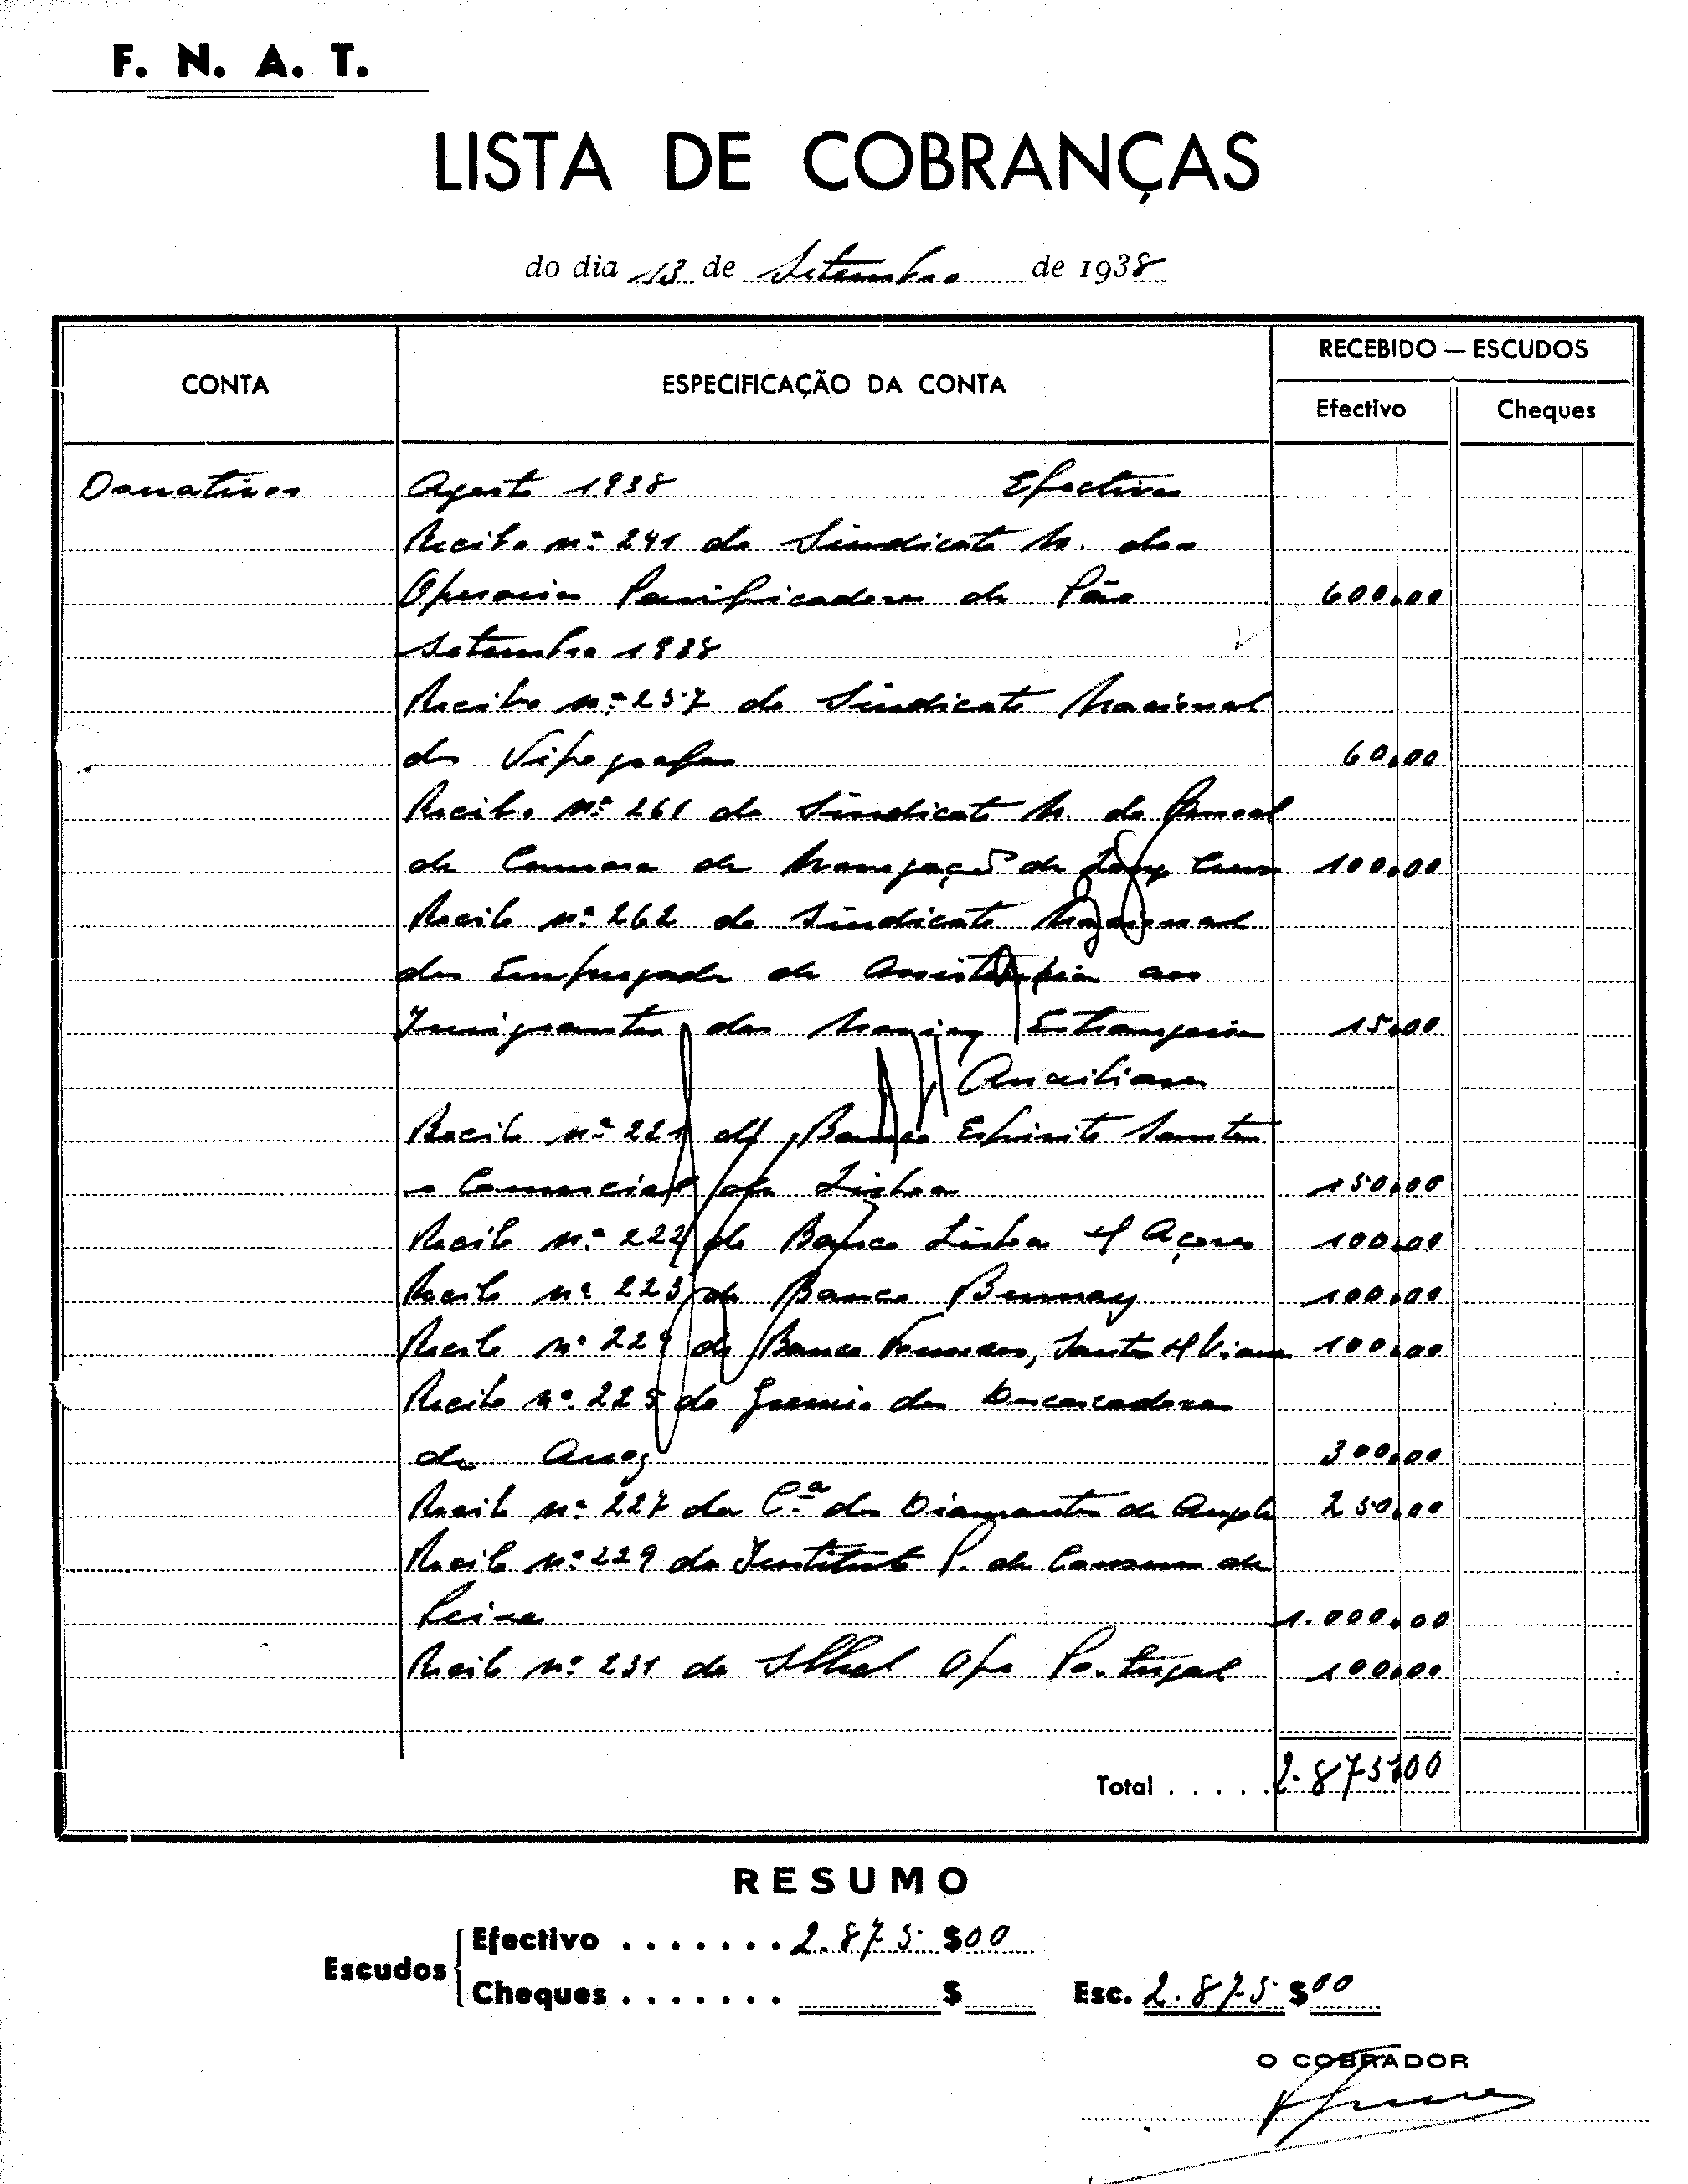 F. N. A. T.
LISTA DE COBRANÇAS
do dia 13 de Setembro de 1938
CONTA
ESPECIFICAÇÃO DA CONTA
RECEBIDO — ESCUDOS
Efectivo
Cheques
Donativos Agosto 1938 Efectivos
Recibo nº 241 do Sindicato N. dos
Operarios Panificadores de Pão 600,00
Setembro 1938
Recibo nº 257 do Sindicato Nacional
dos Tipografos 60,00
Recibo nº 261 do Sindicato N. do Pessoal
de Camara da Navegação de Longo Curso 100,00
Recibo nº 262 do Sindicato Nacional
dos Empregados de Assistencia aos
Imigrantes dos Navios Estrangeiros 15,00
Auxiliares
Recibo nº 221 do Banco Espirito Santo
e Comercial de Lisboa 150,00
Recibo nº 222 do Banco Lisboa & Açores 100,00
Recibo nº 223 do Banco Burnay 100,00
Recibo nº 224 do Banco Fonsecas, Santos & Viana 100,00
Recibo nº 225 do Gremio dos Descascadores
de Arroz 300,00
Recibo nº 227 da C.ª dos Diamantes de Angola 250,00
Recibo nº 229 do Instituto P. de Conservas de
Peixe 1.000,00
Recibo nº 231 da Shell Portugal 100,00
Total . . . . . 2.875,00
RESUMO
Efectivo . . . . . . . 2.875 $00
Escudos
Cheques . . . . . . . $ Esc. 2.875 $00
O COBRADOR